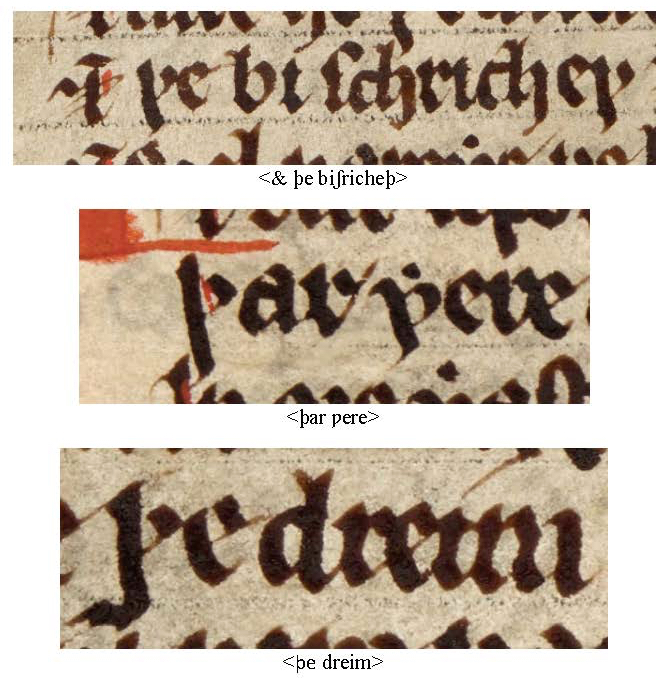 ⁊ þe bi ſchricheþ
<& þe biʃricheþ>
þar ƿere
<þar ƿere>
þe dreim
<þe dreim>